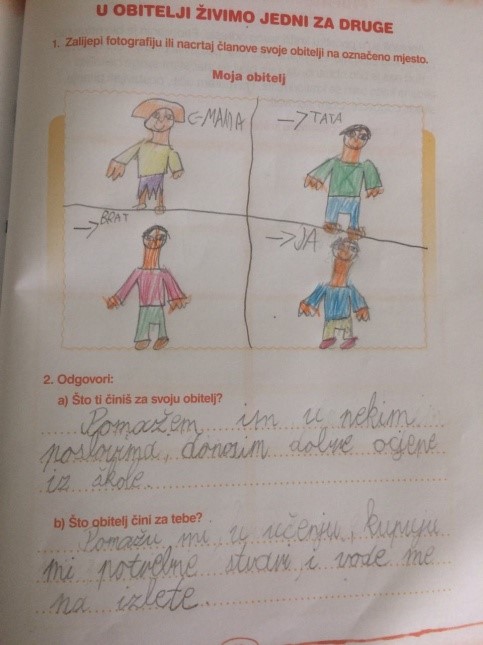 U OBITELJI ŽIVIMO JEDNI ZA DRUGE
1. Zalijepi fotografiju ili nacrtaj članove svoje obitelji na označeno mjesto.
Moja obitelj
MAMA
TATA
BRAT
JA
2. Odgovori:
a) Što ti činiš za svoju obitelj?
Pomažem im u nekim
poslovima, donosim dobre ocjene
iz škole.
b) Što obitelj čini za tebe?
Pomažu mi, u učenju, kupuju
mi potrebne stvari i vode me
na izlete.